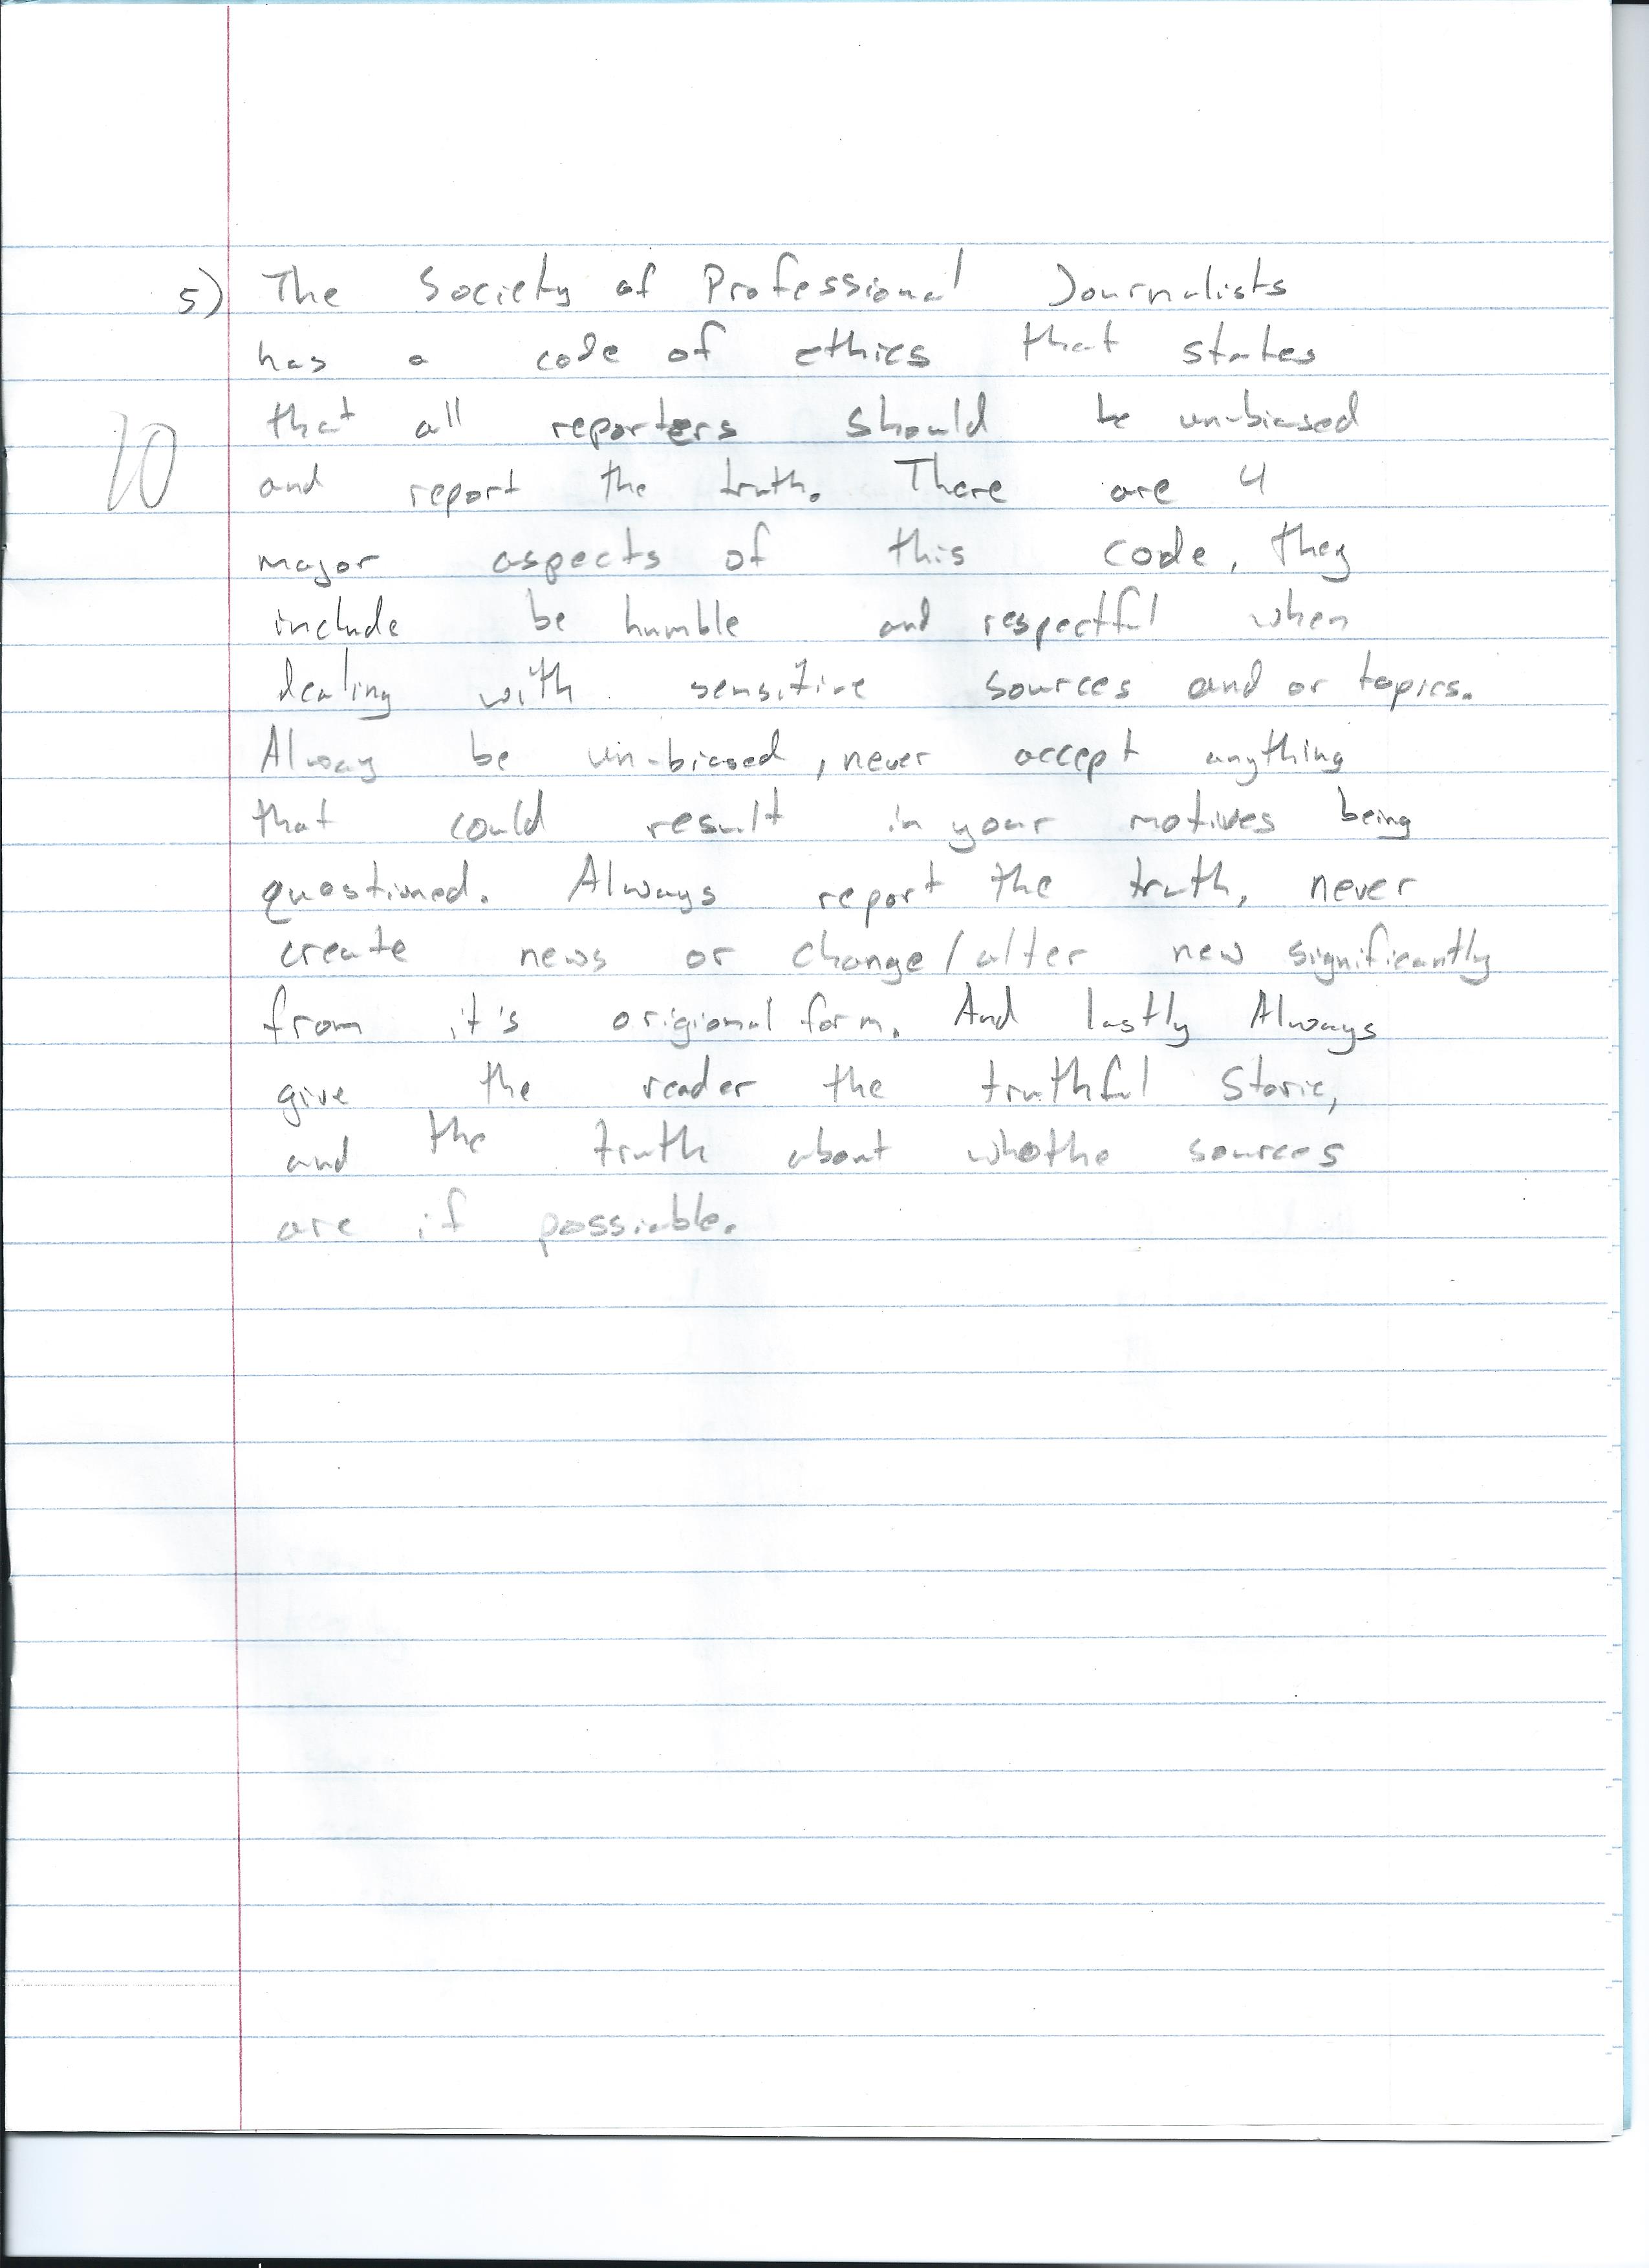 5) The Society of Professional Journalists
has a code of ethics that states
that all reporters should be un-biased
10
and report the truth. There are 4
major aspects of this code, they
include be humble and respectful when
dealing with sensitive sources and or topics.
Alway be un-biased, never accept anything
that could result in your motives being
questioned. Always report the truth, never
create news or change/alter new significantly
from it's origional form. And lastly Always
give the reader the truthful Storie,
and the truth about whothe sources
are if possiable.